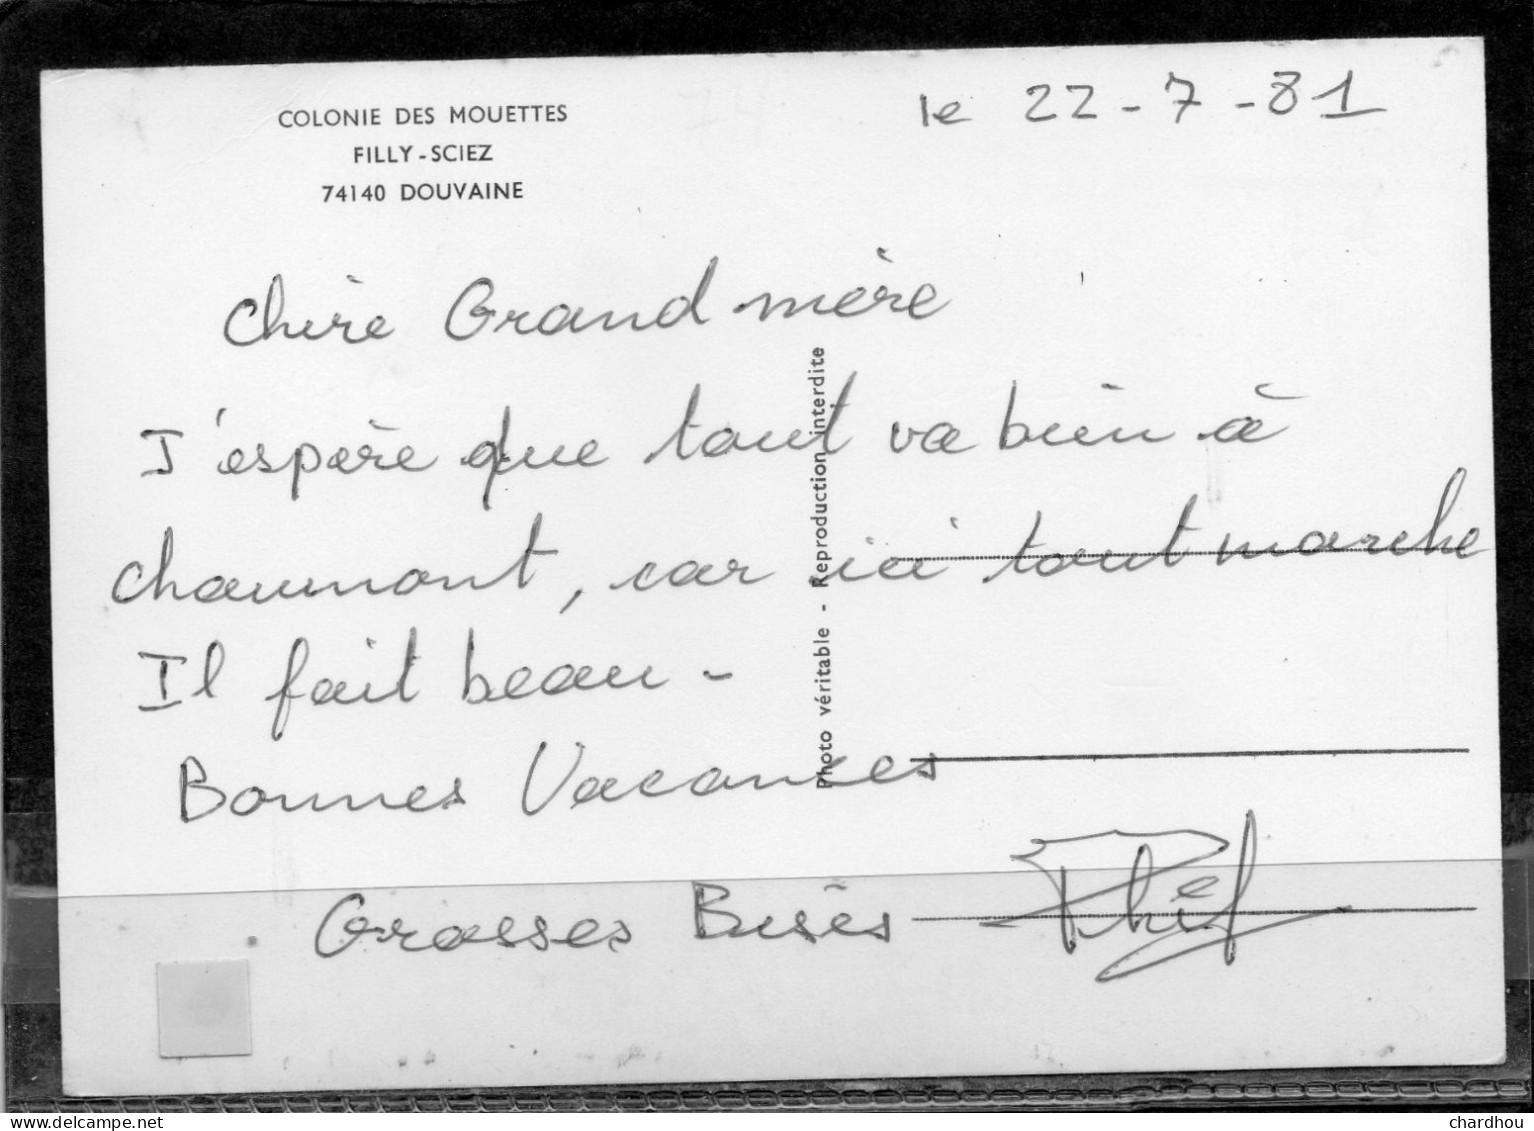 COLONIE DES MOUETTES
FILLY - SCIEZ
74140 DOUVAINE
le 22 - 7 - 81
Chère Grand mère
J'espère que tout va bien à
Chaumont, car ici tout marche
Il fait beau -
Bonnes Vacances
Grosses Bises
Photo véritable - Reproduction interdite
delcampe.net
chardhou